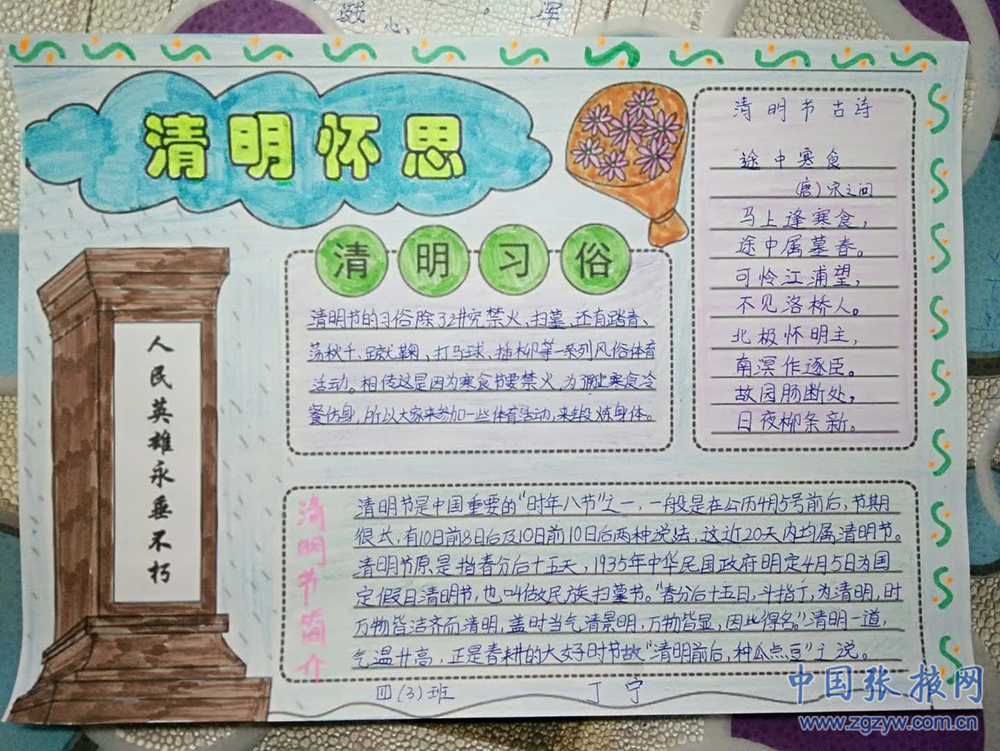 清明怀思
清明节古诗
途中寒食
(唐)宋之问
马上逢寒食,
途中属暮春。
可怜江浦望,
不见洛桥人。
北极怀明主,
南溟作逐臣。
故园肠断处,
日夜柳条新。
清明习俗
清明节的习俗除了讲究禁火、扫墓、还有踏青、
荡秋千、蹴鞠、打马球、插柳等一系列风俗体育
活动。相传这是因为寒食节要禁火,为了防止寒食冷
餐伤身,所以大家来参加一些体育活动,来锻炼身体。
人民英雄永垂不朽
清明节简介
清明节是中国重要的“时年八节”之一,一般是在公历4月5号前后,节期
很长,有10日前8日后及10日前10日后两种说法,这近20天内均属清明节。
清明节原是指春分后十五天,1935年中华民国政府明定4月5日为国
定假日清明节,也叫做民族扫墓节。“春分后十五日,斗指丁,为清明,时
万物皆洁齐而清明,盖时当气清景明,万物皆显,因此得名。”清明一道,
气温升高,正是春耕的大好时节故“清明前后,种瓜点豆”之说。
四(3)班 丁宁
中国张掖网
www.zgzyw.com.cn